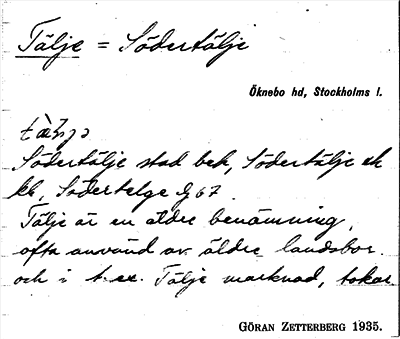 Tälje = Södertälje
Öknebo hd, Stockholms l.
Södertälje stad bek, Södertälje ek
kb, Södertelge Gj 67
Tälje är en äldre benämning,
ofta använd av äldre landsbor
och i t. ex. Tälje marknad, tokar.
GÖRAN ZETTERBERG 1935.